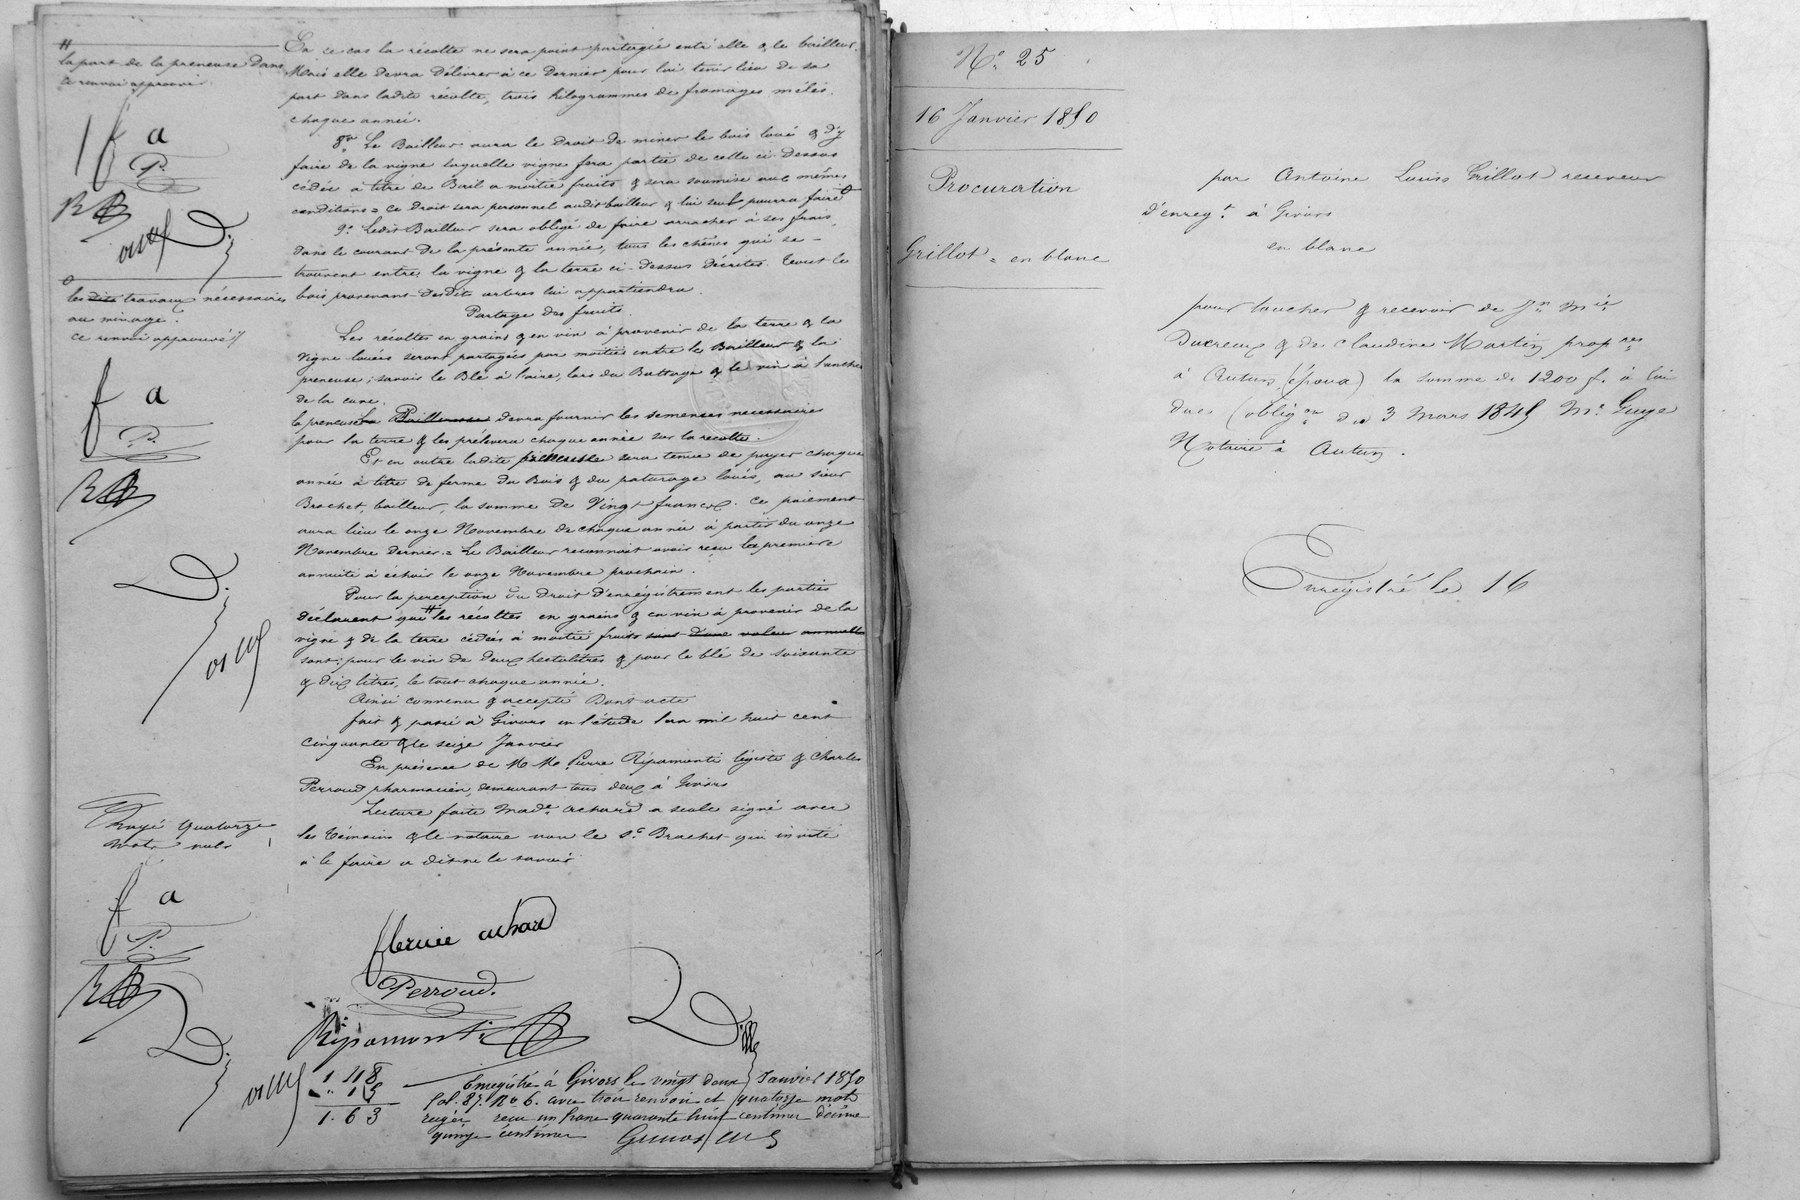 #
la part de la preneuse dans
ce renvoi approuvé.
f a
P.
RB
les dits travaux nécessaires
au minage.
ce renvoi approuvé
f a
P.
RB
Rayé quatorze
mots nuls
f a
P.
RB
En ce cas la récolte ne sera point partagée entr'elle & le bailleur.
Mais elle devra délivrer à ce dernier pour lui tenir lieu de sa
part dans ladite récolte, trois kilogrammes de fromages mêlés,
chaque année.
8°. Le Bailleur aura le droit de miner le bois loué & d'y
faire de la vigne laquelle vigne fera partie de celle ci-dessus
cédée à titre de Bail à moitié fruits & sera soumise aux mêmes
conditions = ce droit sera personnel audit bailleur & lui seul pourra faire
9°. Ledit Bailleur sera obligé de faire arracher à ses frais,
dans le courant de la présente année, tous les chênes qui se
trouvent entre la vigne & la terre ci-dessus décrites. Tout le
bois provenant desdits arbres lui appartiendra.
Partage des fruits.
Les récoltes en grains & en vin à provenir de la terre & la
vigne louées seront partagées par moitié entre le Bailleur & la
preneuse; savoir le Blé à l'aire, lors du Battage & le vin à l'anche
de la cuve.
la preneuse La Bailleresse devra fournir les semences nécessaires
pour la terre & les prélevera chaque année sur la récolte.
Et en outre ladite preneuse sera tenue de payer chaque
année à titre de ferme du Bois & du paturage loués, au sieur
Brachet, bailleur, la somme de Vingt francs. Ce paiement
aura lieu le onze Novembre de chaque année à partir du onze
Novembre dernier. = Le Bailleur reconnait avoir reçu la première
annuité à échoir le onze Novembre prochain.
Pour la perception du droit d'enregistrement les parties
déclarent que # les récoltes en grains & en vin à provenir de la
vigne & de la terre cédées à moitié fruits sont d'une valeur annuelle
sont: pour le vin de deux hectolitres & pour le blé de soixante
& dix litres, le tout chaque année.
Ainsi convenu & accepté Dont acte
fait & passé à Givors en l'étude l'an mil huit cent
cinquante & le seize Janvier
En présence de M. Me. Pierre Ripamonti légiste & Charles
Perroud pharmacien, demeurant tous deux à Givors
Lecture faite Made. Achard a seule signé avec
les témoins & le notaire non le Sr. Brachet qui invité
à le faire a dit ne le savoir
achard
Perroud.
Ripamonti
1 48
" 15
1. 63
Enregistré à Givors le vingt deux Janvier 1850
fol. 87. No 6. avec trois renvois et quatorze mots
rayés reçu un franc quarante huit centimes décime
quinze centimes
N° 25
16 Janvier 1850
Procuration
Grillot = en blanc
par Antoine Louis Grillot receveur
d'enregt. à Givors
en blanc
pour toucher & recevoir de Jn. Mie
Ducreux & de Claudine Martin propres
à Autun (époux) la somme de 1200 f. à lui
due (obligon du 3 mars 1845 Me. Guye
Notaire à Autun.
Enregistré le 16